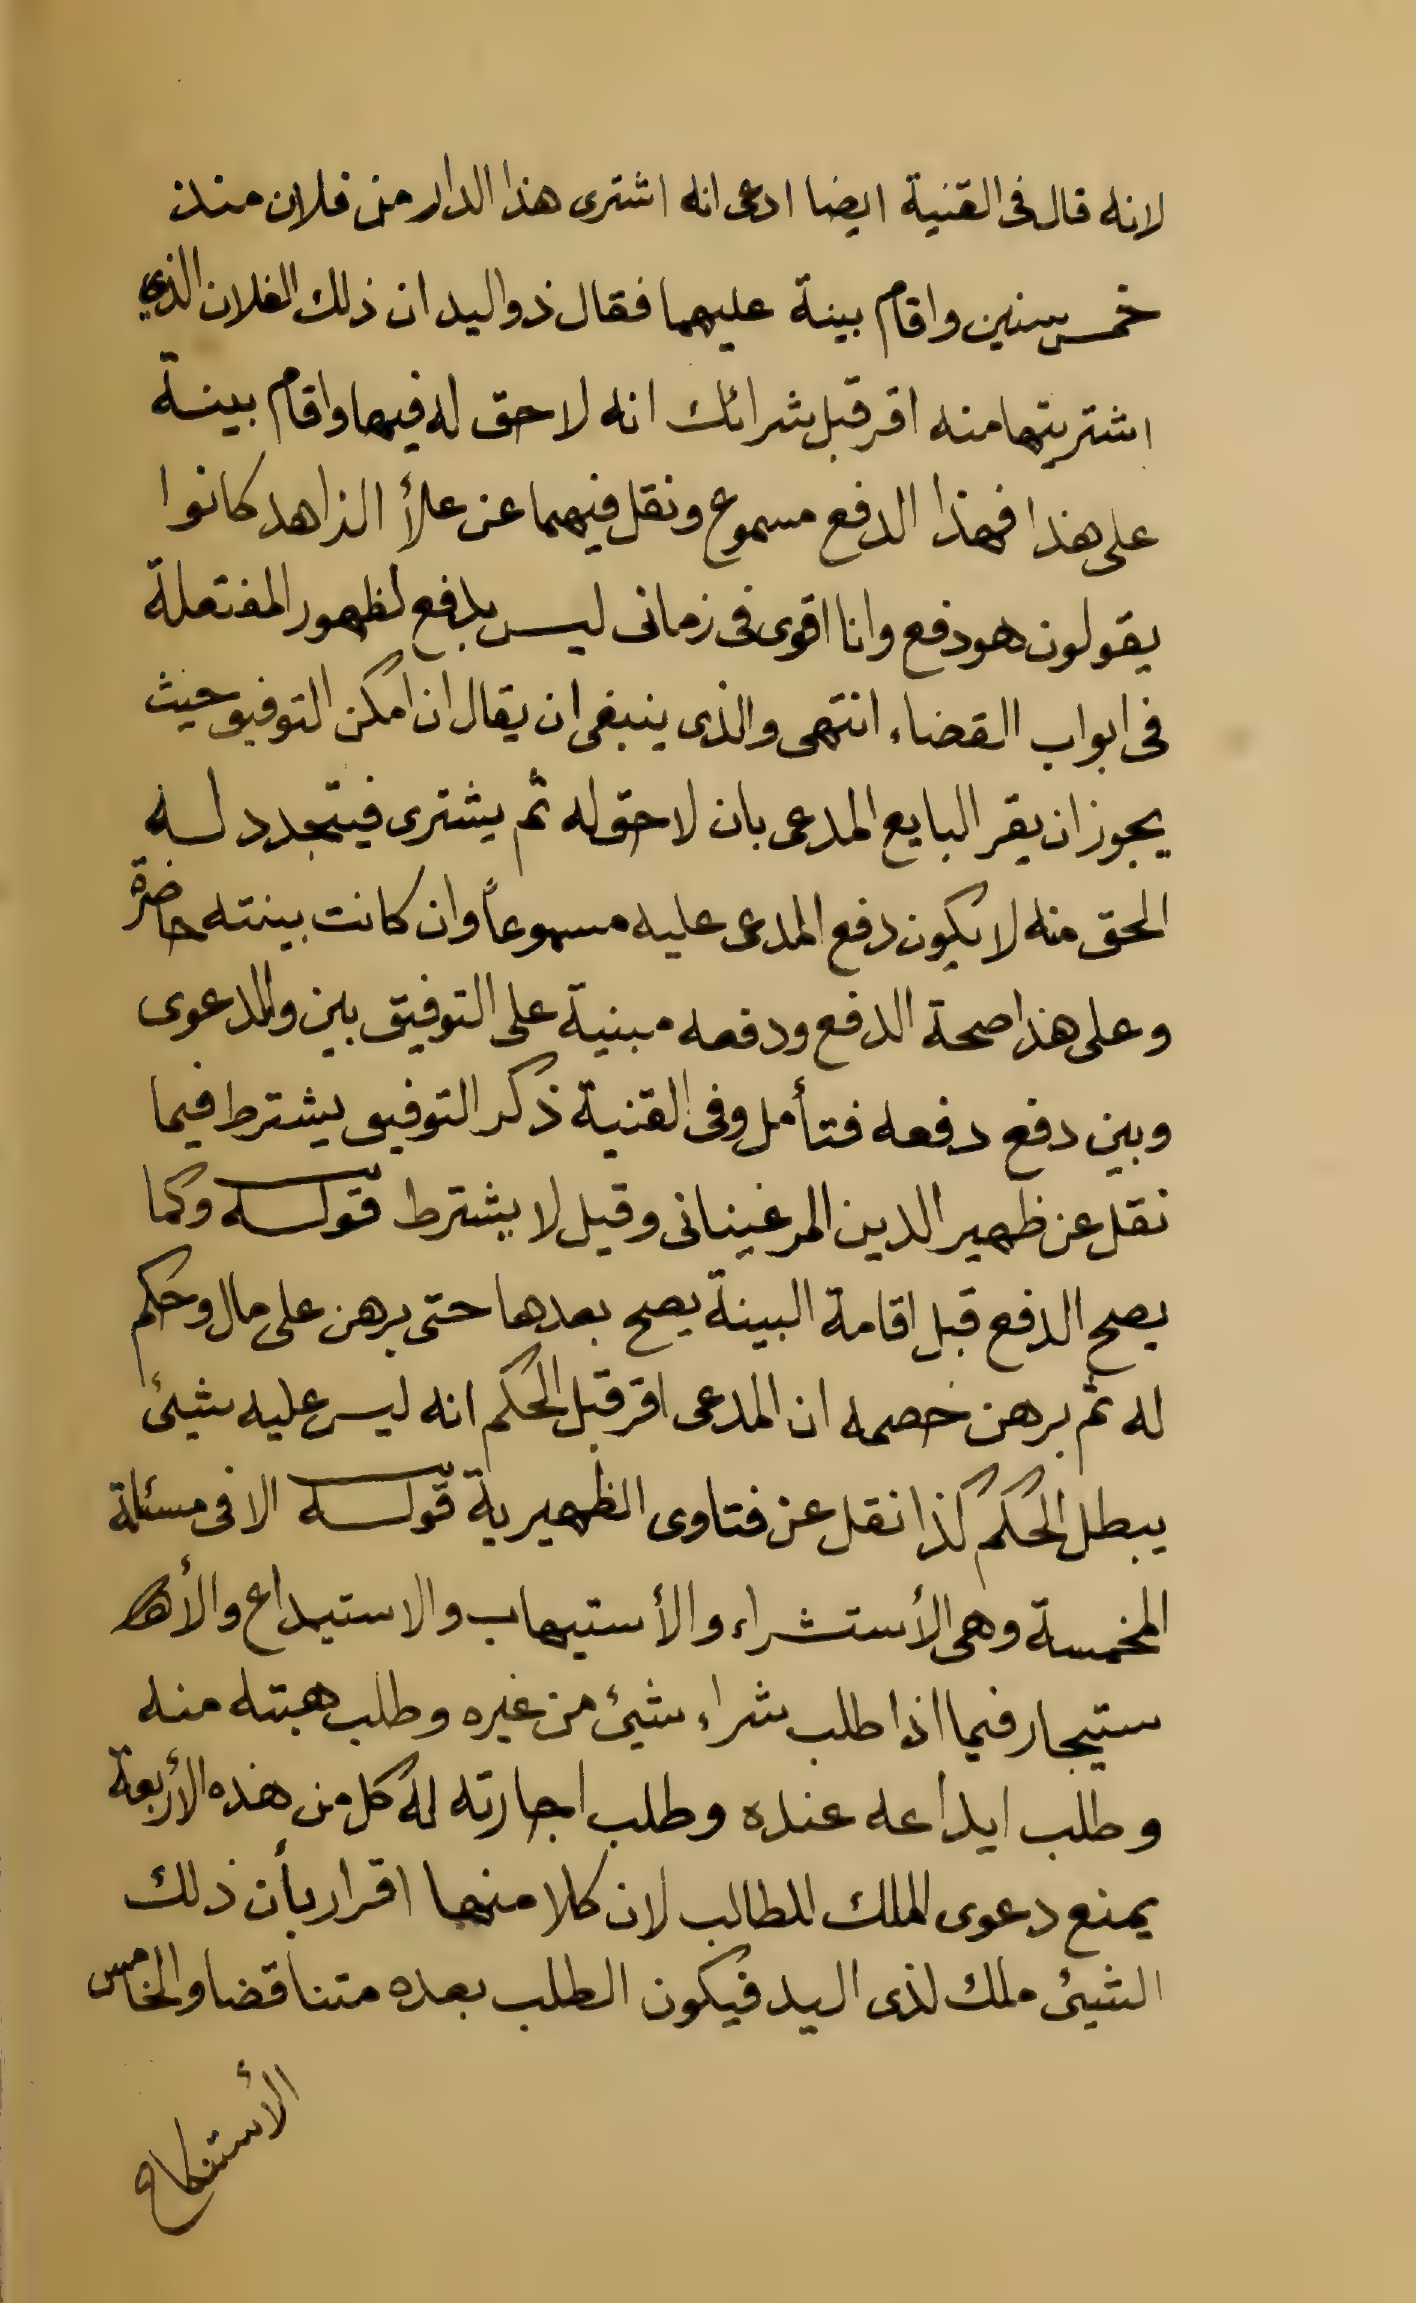 لانه قال فى القنية ايضا ادعى انه اشترى هذا الدار من فلان منذ
خمس سنين واقام بينة عليهما فقال ذو اليد ان ذلك الفلان الذي
اشتريتها منه اقر قبل شرائك انه لا حق له فيها واقام بينة
على هذا فهذا الدفع مسموع ونقل فيهما عن علأ الزاهد كانوا
يقولون هو دفع وانا اقوى فى زمانى ليس بدفع لظهور المفتعلة
فى ابواب القضاء انتهى والذى ينبغى ان يقال ان امكن التوفيق حيث
يجوز ان يقر البايع المدعى بان لا حق له ثم يشترى فيتجدد له
الحق منه لا يكون دفع المدعى عليه مسموعاً وان كانت بينته حاضرة
وعلى هذا صحة الدفع ودفعه مبنية على التوفيق بين والمدعوى
وبين دفع دفعه فتأمل وفى القنية ذكر التوفيق يشترط فيما
نقل عن ظهير الدين المرغينانى وقيل لا يشترط قوله وكما
يصح الدفع قبل اقامة البينة يصح بعدها حتى برهن على مال وحكم
له ثم برهن خصمه ان المدعى اقر قبل الحكم انه ليس عليه شيئ
يبطل الحكم كذا نقل عن فتاوى الظهيرية قوله الا فى مسئلة
المخمسة وهى الأستشراء والأستيهاب والاستيداع والأ
ستيجار فيما اذا طلب شراء شيئ من غيره وطلب هبته منه
وطلب ايداعه عنده وطلب اجارته له كل من هذه الأربعة
يمنع دعوى الملك للطالب لان كلا منها اقرار بأن ذلك
الشيئ ملك لذى اليد فيكون الطلب بعده متناقضا والخامس
الأستنكاح